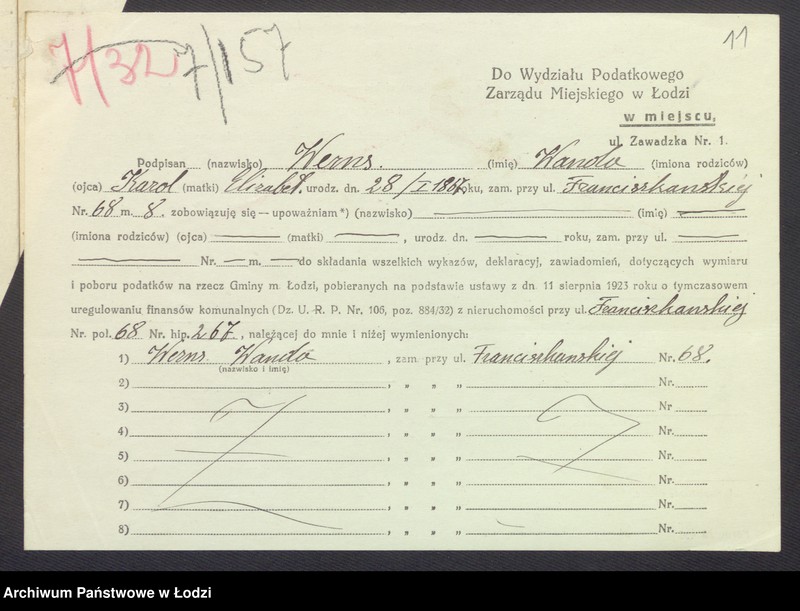 7/32 7/157
11
Do Wydziału Podatkowego
Zarządu Miejskiego w Łodzi
w miejscu,
ul. Zawadzka Nr. 1.
Podpisan (nazwisko) Werns. (imię) Wanda (imiona rodziców)
(ojca) Karol (matki) Elizabet. urodz. dn. 28/I roku, zam. przy ul. Franciszkańskiej
Nr. 68 m. 8. zobowiązuję się — upoważniam *) (nazwisko) (imię)
(imiona rodziców) (ojca) (matki) , urodz. dn. roku, zam. przy ul.
Nr. m. do składania wszelkich wykazów, deklaracyj, zawiadomień, dotyczących wymiaru
i poboru podatków na rzecz Gminy m. Łodzi, pobieranych na podstawie ustawy z dn. 11 sierpnia 1923 roku o tymczasowem
uregulowaniu finansów komunalnych (Dz. U. R. P. Nr. 106, poz. 884/32) z nieruchomości przy ul. Franciszkańskiej
Nr. pol. 68 Nr. hip. 267, należącej do mnie i niżej wymienionych:
1) Werns Wanda , zam. przy ul. Franciszkańskiej Nr. 68.
(nazwisko i imię)
2) , „ „ „ Nr.
3) , „ „ „ Nr
4) , „ „ „ Nr.
5) , „ „ „ Nr.
6) , „ „ „ Nr.
7) , „ „ „ Nr.
8) , „ „ „ Nr.
Archiwum Państwowe w Łodzi